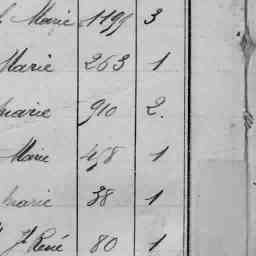 Marie 1195 3
Marie 263 1
marie 910 2.
Marie 458 1
marie 38 1
J René 80 1